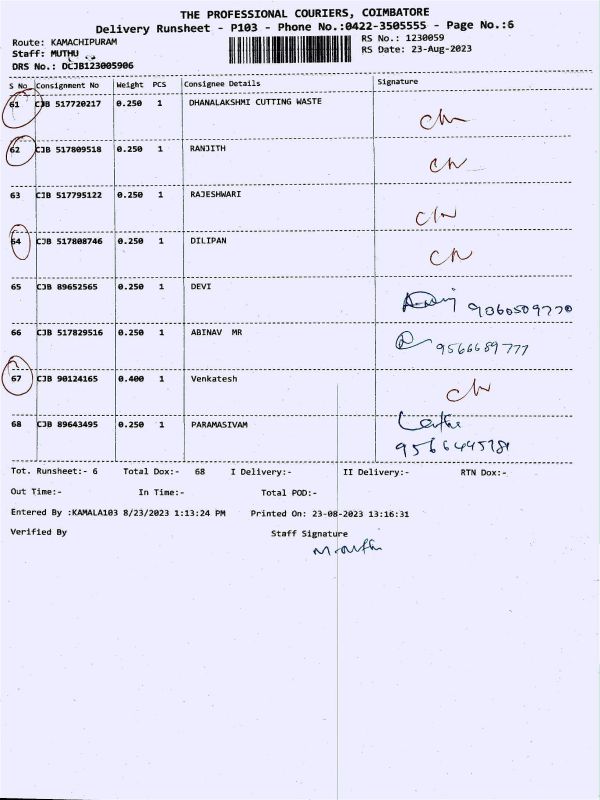 THE PROFESSIONAL COURIERS, COIMBATORE
Delivery Runsheet - P103 - Phone No.:0422-3505555 - Page No.:6
Route: KAMACHIPURAM
RS No.: 1230059
Staff: MUTHU
RS Date: 23-Aug-2023
DRS No.: DCJB123005906
S No Consignment No Weight PCS Consignee Details Signature
61 CJB 517720217 0.250 1 DHANALAKSHMI CUTTING WASTE
62 CJB 517809518 0.250 1 RANJITH
63 CJB 517795122 0.250 1 RAJESHWARI
64 CJB 517808746 0.250 1 DILIPAN
65 CJB 89652565 0.250 1 DEVI
9360509770
66 CJB 517829516 0.250 1 ABINAV MR
9566689777
67 CJB 90124165 0.400 1 Venkatesh
68 CJB 89643495 0.250 1 PARAMASIVAM
Tot. Runsheet:- 6 Total Dox:- 68 I Delivery:- II Delivery:- RTN Dox:-
Out Time:- In Time:- Total POD:-
Entered By :KAMALA103 8/23/2023 1:13:24 PM Printed On: 23-08-2023 13:16:31
Verified By Staff Signature